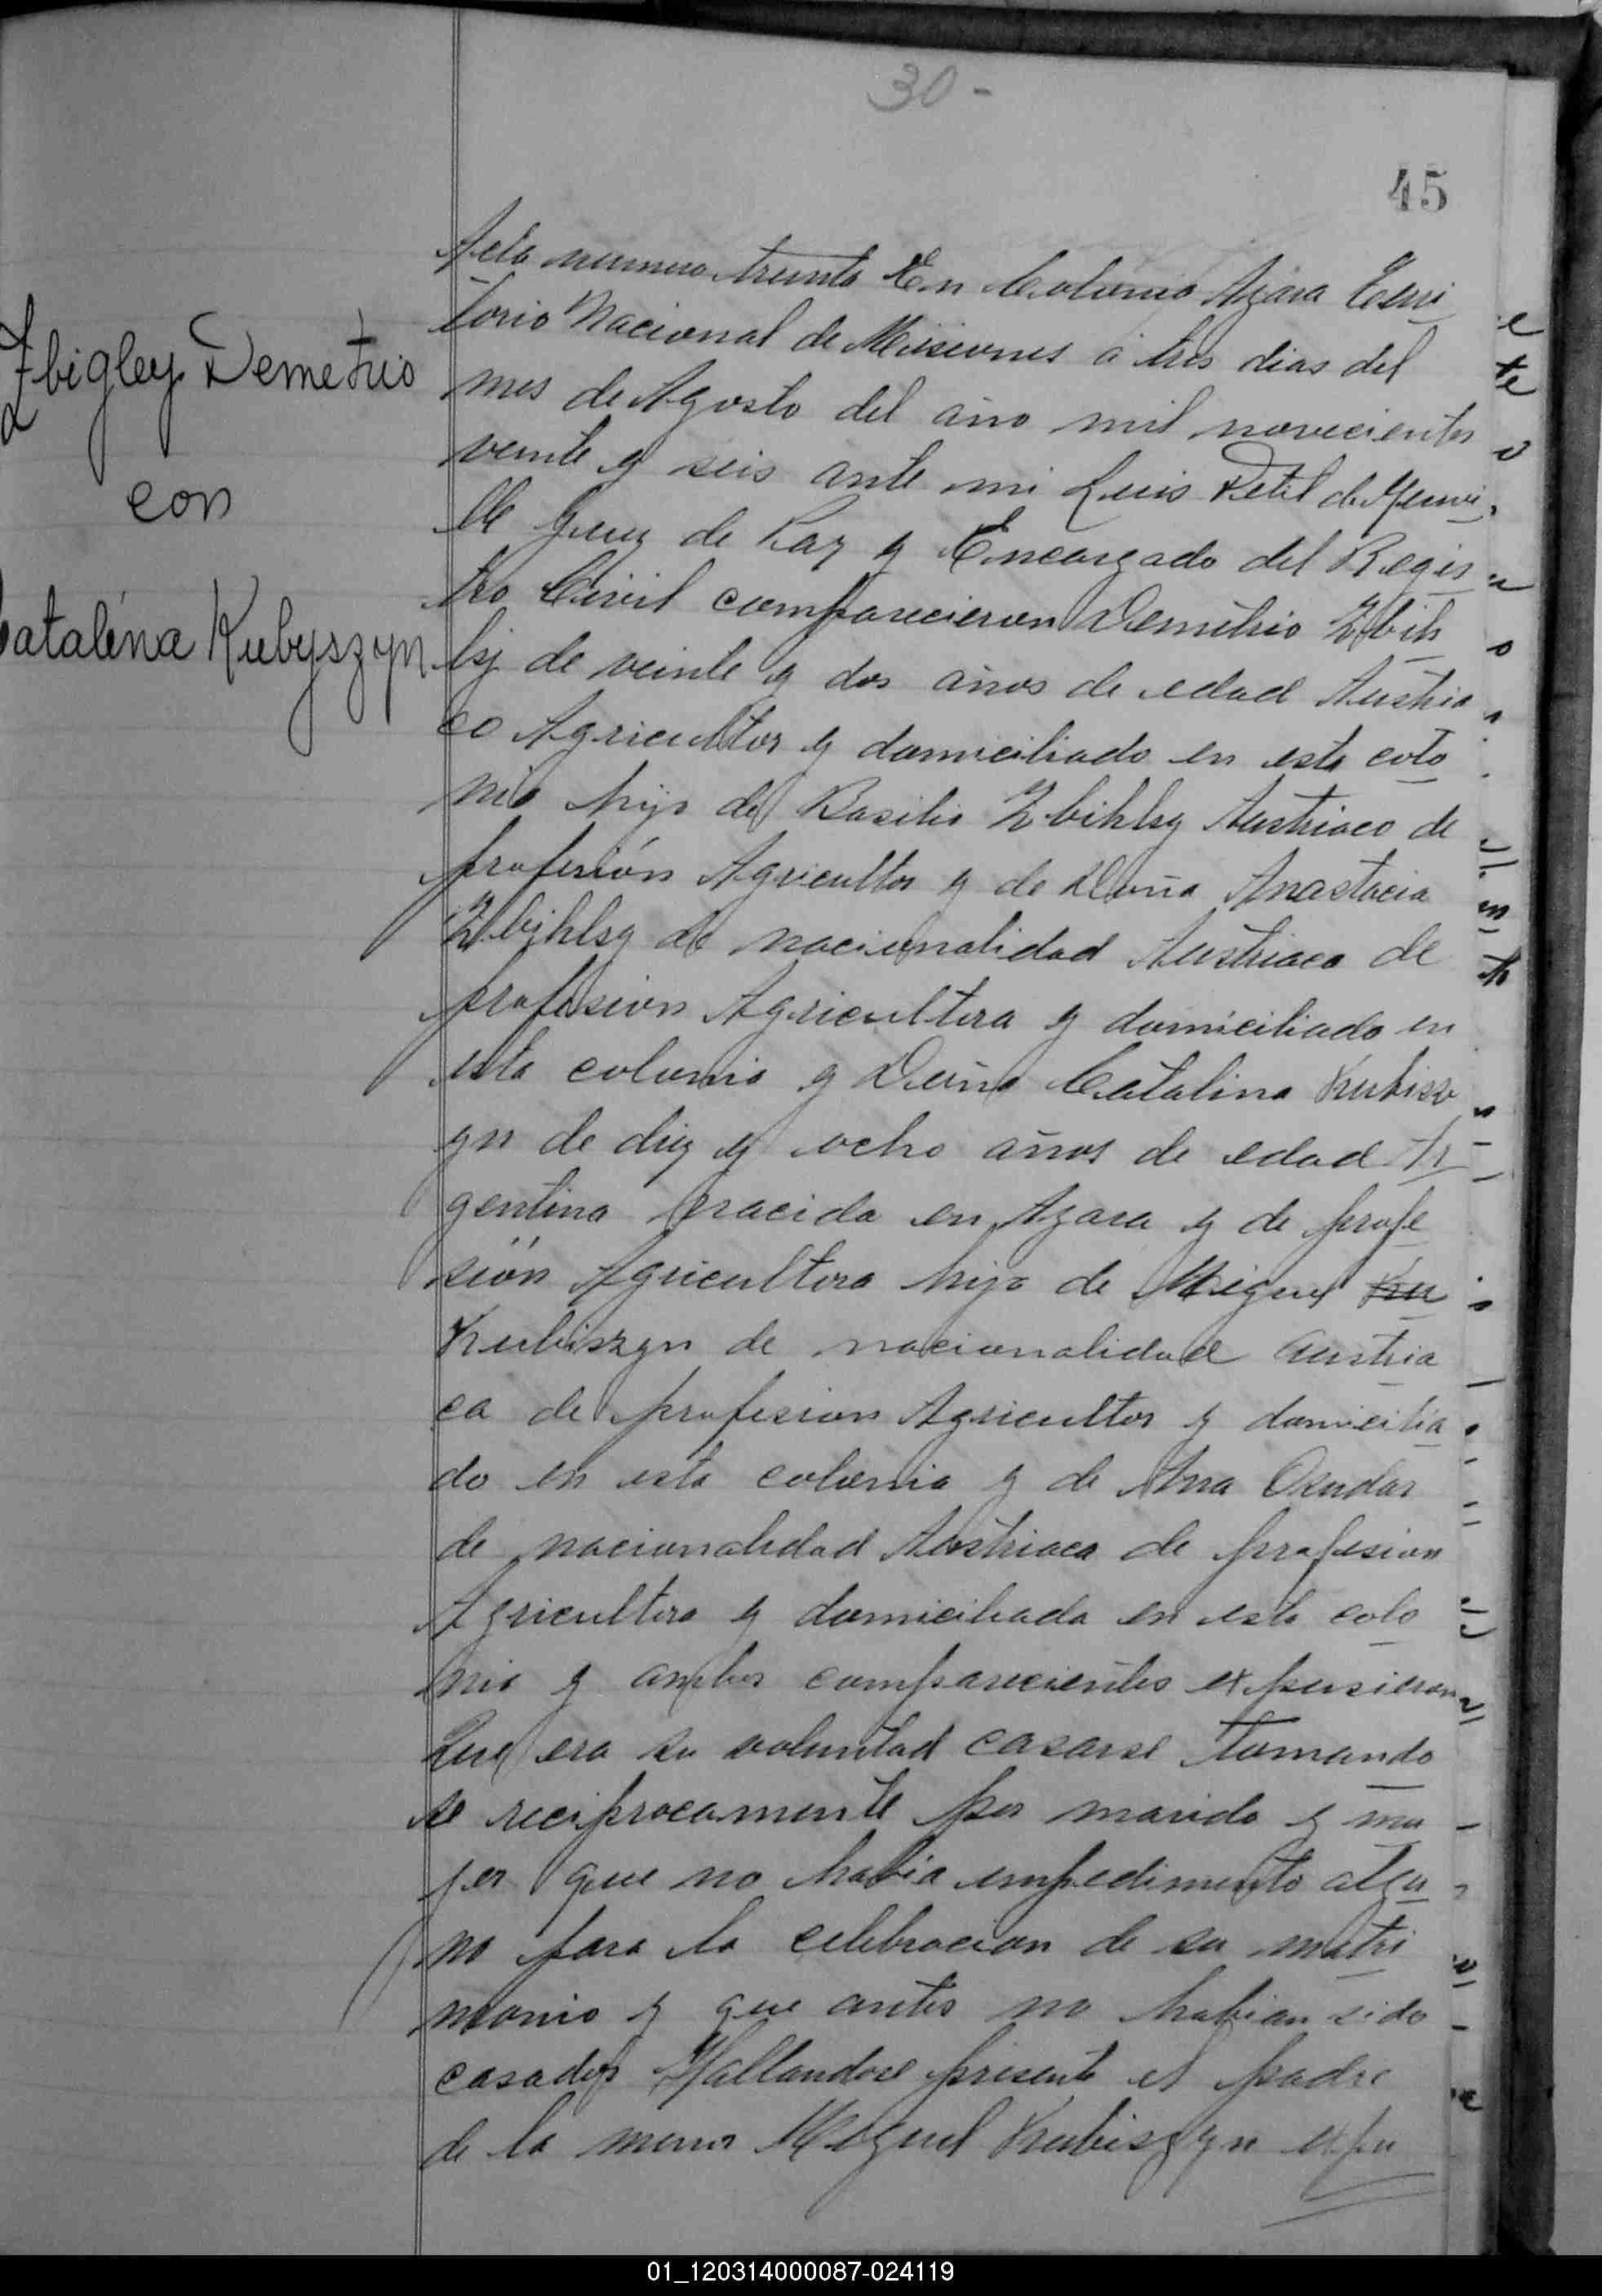 30 -
45
Zbigley Demetrio
con
Catalina Kubyszyn
Acta numero treinta En Colonia Azara Terri
torio Nacional de Misiones á tres dias del
mes de Agosto del año mil novecientos
veinte y seis ante mi Luis Petit de Meurvi
lle Juez de Paz y Encargado del Regis
tro Civil comparecieron Demetrio Zbih
lsj de veinte y dos años de edad Austria
co Agricultor y domiciliado en esta colo
nia hijo de Basilio Zbihlsy Austriaco de
profesión Agricultor y de Doña Anastacia
Zbihlsy de nacionalidad Austriaca de
profesion Agricultora y domiciliado en
esta colonia y Doña Catalina Kubisz
yn de diez y ocho años de edad Ar
gentina nacida en Azara y de profe
sión Agricultora hija de Miguel Ku
Kubiszyn de nacionalidad austria
ca de profesion Agricultor y domicilia
do en esta colonia y de Ana
de nacionalidad Austriaca de profesion
Agricultora y domiciliada en esta colo
nia y ambos comparecientes expusieron
Que era su voluntad casarse tomando
se reciprocamente por marido y mu
jer que no habia impedimento algu
no para la celebracion de su matri
monio y que antes no habian sido
casados Hallandose presente el padre
de la menor Miguel Kubiszyn expu
01_120314000087-024119